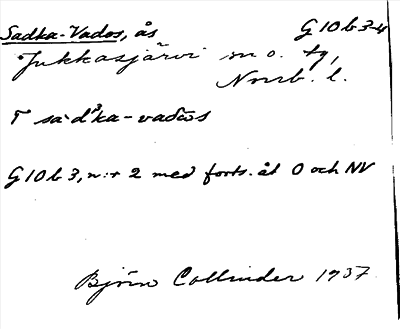 Sadka-Vados, ås G 10 b 3-4
Jukkasjärvi sn o. tg,
Norrb. l.
T sa·dʾka-vadōs
G 10 b 3, n:r 2 med forts. åt O och NV
Björn Collinder 1937